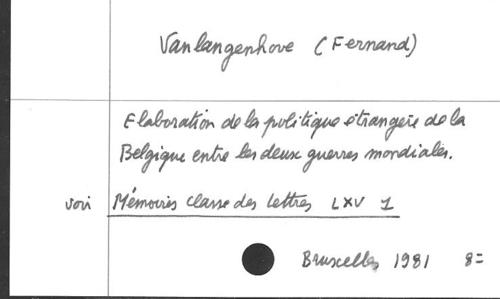 Vanlangenhove (Fernand)
Elaboration de la politique étrangère de la
Belgique entre les deux guerres mondiales.
voir Mémoires classe des lettres LXV 1
Bruxelles 1981 8=